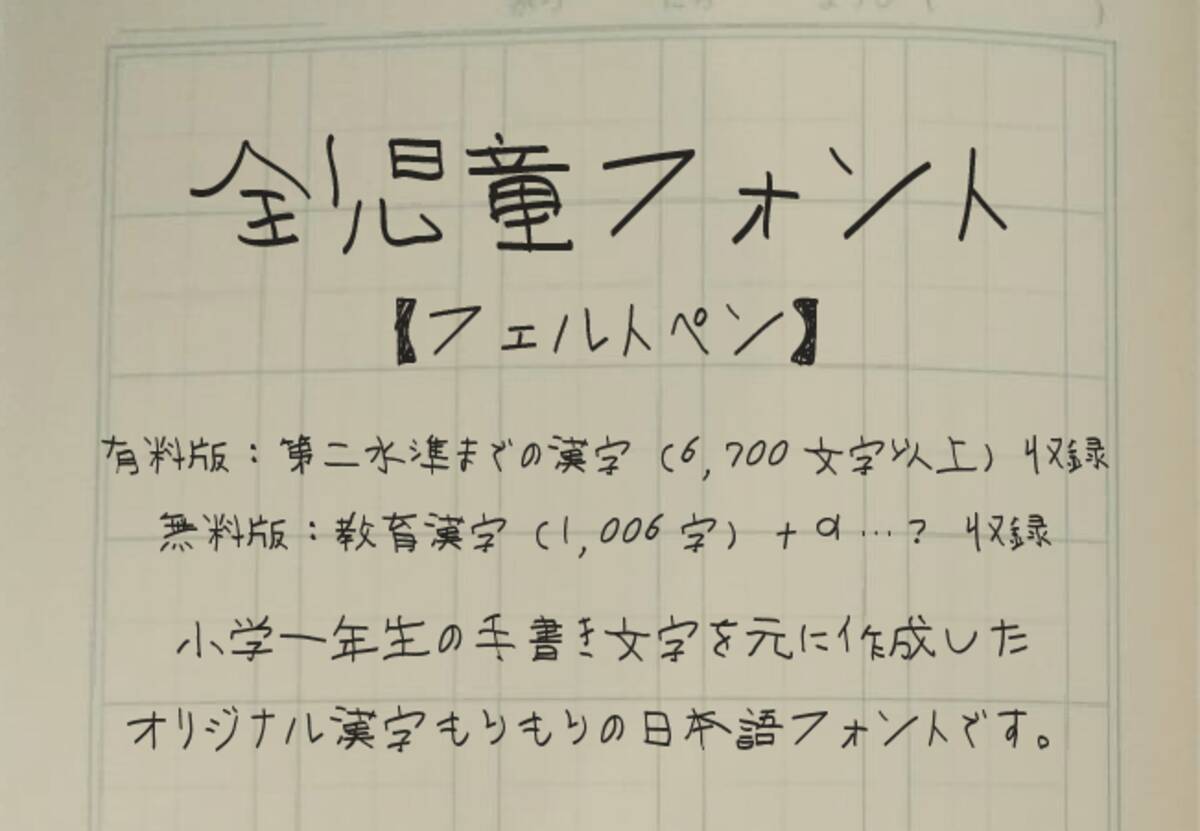 全児童フォント
【フェルトペン】
有料版：第二水準までの漢字（6,700文字以上）収録
無料版：教育漢字（1,006字）+α…？収録
小学一年生の手書き文字を元に作成した
オリジナル漢字もりもりの日本語フォントです。